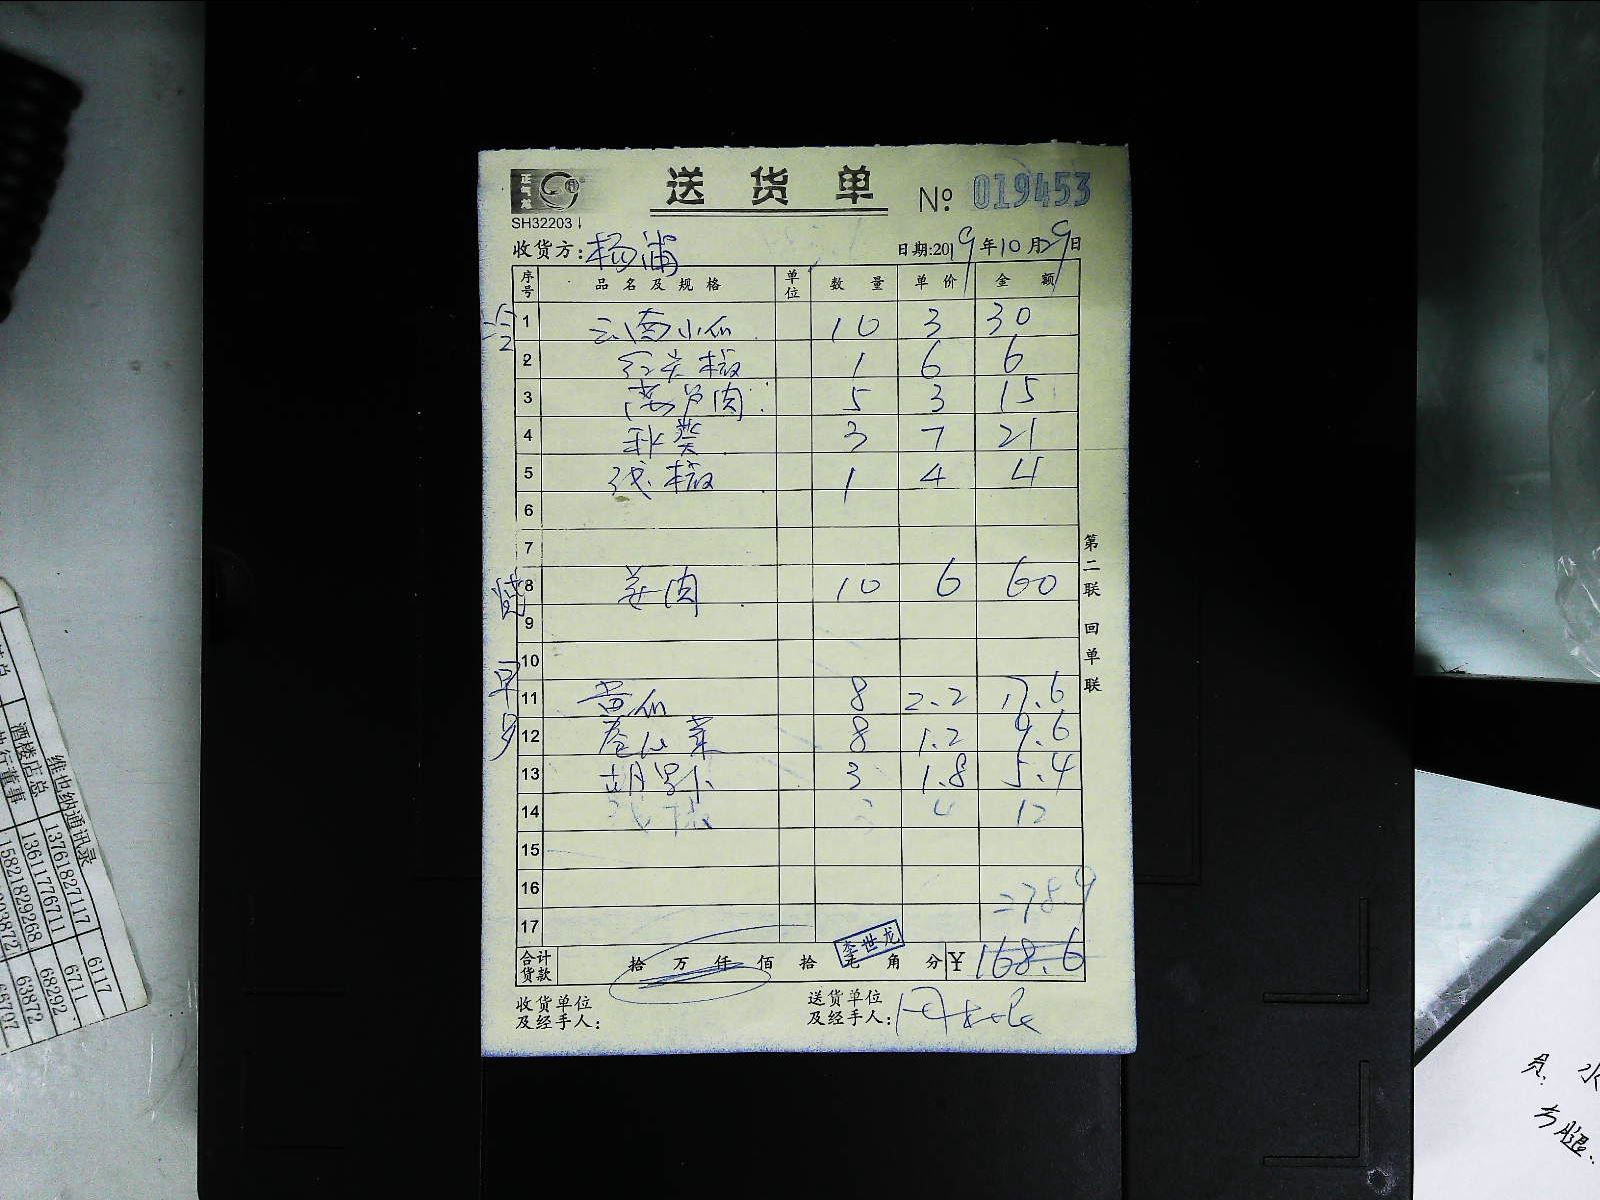 正气龙
送货单 № 019453
SH32203
收货方: 杨浦 日期:2019年10月29日
序号 品名及规格 单位 数量 单价 金额
1 云南小瓜 10 3 30
2 红尖椒 1 6 6
3 葫芦肉 5 3 15
4 秋葵 3 7 21
5 线椒 1 4 4
6
7
8 姜肉 10 6 60
9
10
11 黄瓜 8 2.2 17.6
12 卷心菜 8 1.2 9.6
13 胡罗卜 3 1.8 5.4
14 线椒 3 4 12
15
16 278.9
17
合计货款 拾 万 仟 佰 拾 元 角 分 ¥ 168.6
李世龙
收货单位及经手人: 送货单位及经手人:
第二联 回单联
维也纳通讯录
酒楼店总 13761827117 6117
执行董事 13611776711 6711
15821829268 68292
63872